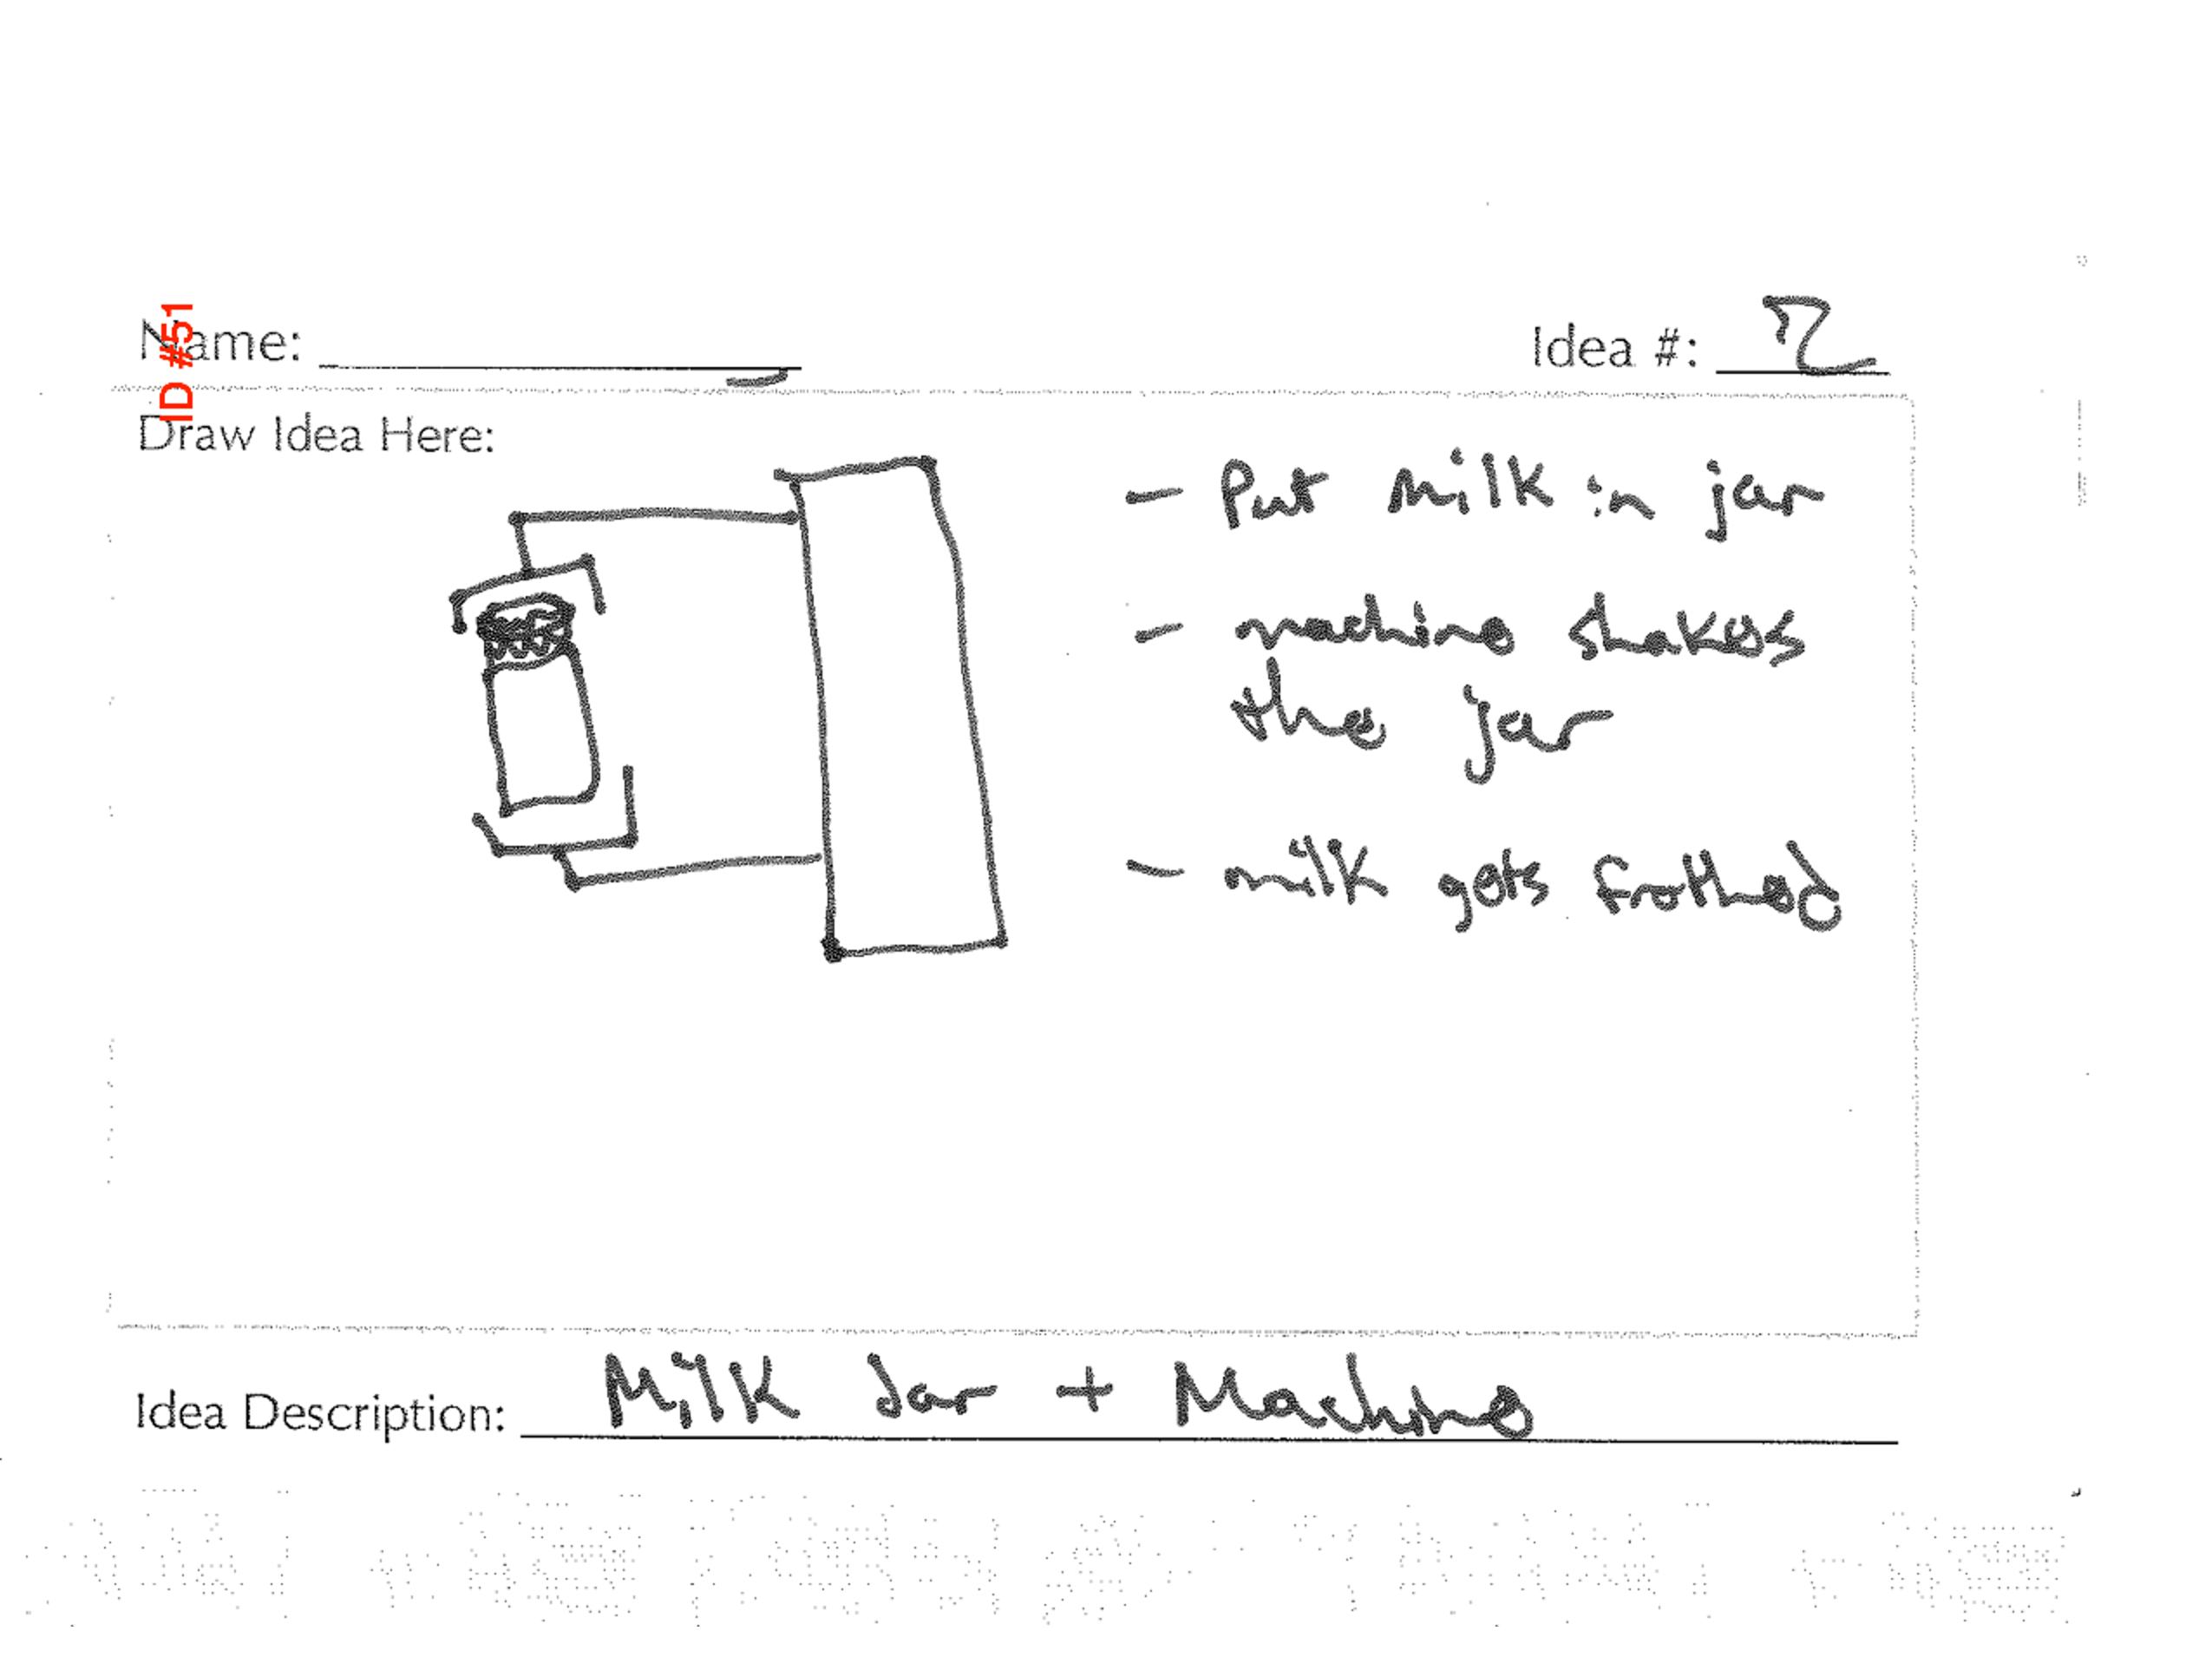 ID #51
Name:
Idea #: 2
Draw Idea Here:
- Put milk in jar
- machine shakes
the jar
- milk gets frothed
Idea Description: Milk Jar + Machine